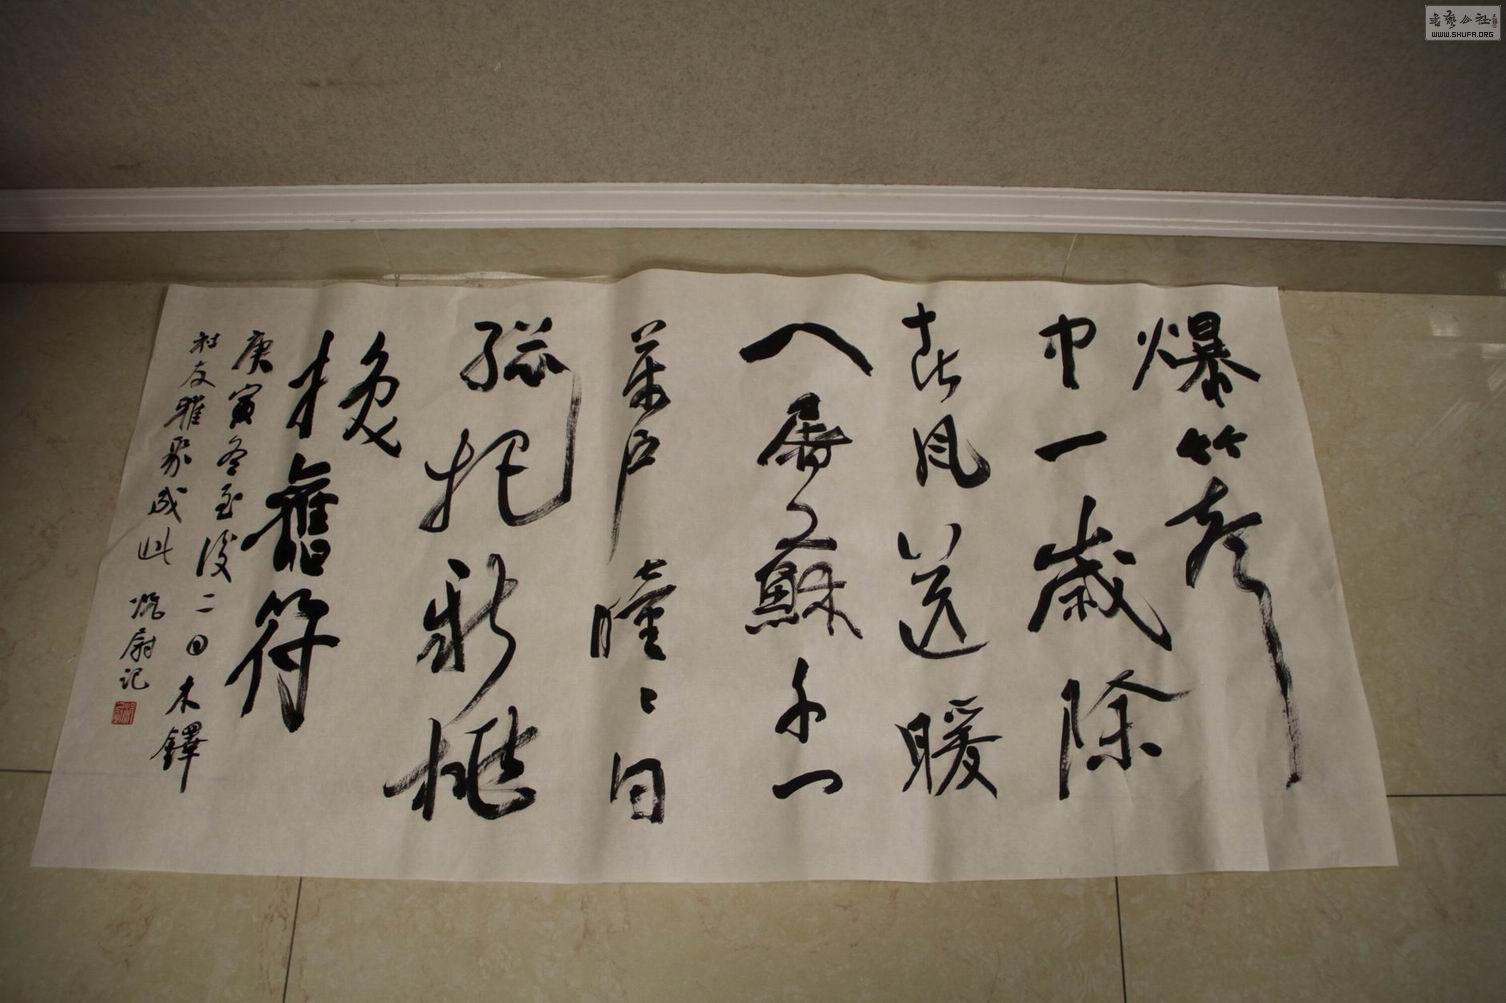 爆竹聲
中一歲除
春風送暖
入屠蘇千門
萬戶曈々日
總把新桃
換舊符
庚寅冬至後二日木鐸
社友雅聚成此 記
書藝公社
WWW.SHUFA.ORG